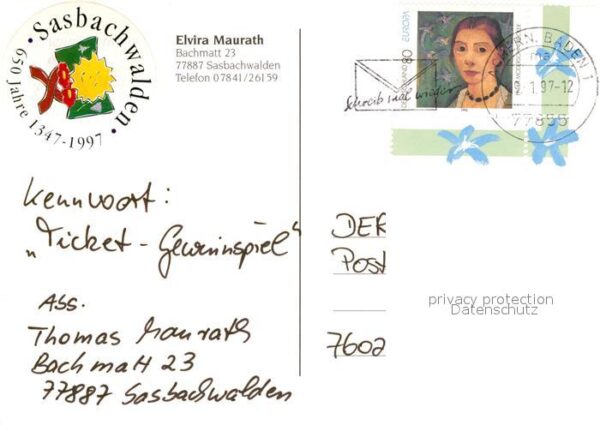 Sasbachwalden
650 Jahre 1347-1997
Elvira Maurath
Bachmatt 23
77887 Sasbachwalden
Telefon 07841/26159
80
Schreib mal wieder
ACHERN, BADEN 1
-12
77855
Kennwort:
„Ticket - Gewinnspiel“
Abs.
Thomas Maurath
Bachmatt 23
77887 Sasbachwalden
Post
7602
privacy protection
Datenschutz